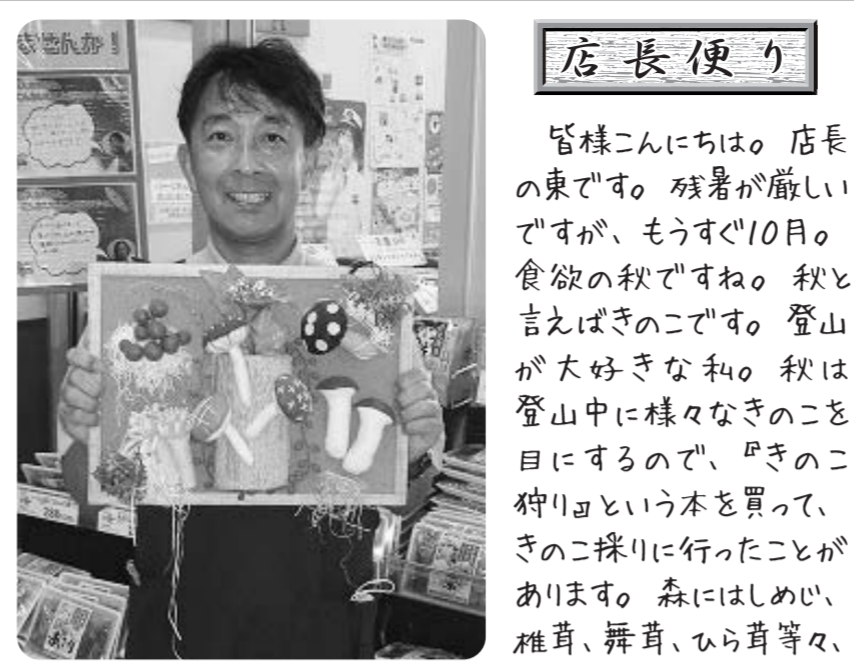 ませんか!
店長便り
皆様こんにちは。店長
の東です。残暑が厳しい
ですが、もうすぐ10月。
食欲の秋ですね。秋と
言えばきのこです。登山
が大好きな私。秋は
登山中に様々なきのこを
目にするので、『きのこ
狩り』という本を買って、
きのこ採りに行ったことが
あります。森にはしめじ、
椎茸、舞茸、ひら茸等々、